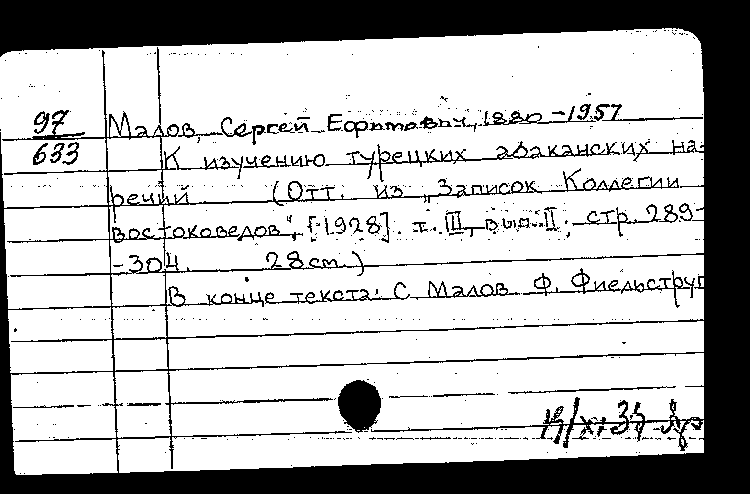 97
633
Малов, Сергей Ефимович, 1880-1957
К изучению турецких абаканских на-
речий (Отт. из „Записок Коллегии
востоковедов", [1928]. т. III, вып. II. стр. 289-
-304. 28cm.)
В конце текста: С. Малов Ф. Фиельструп